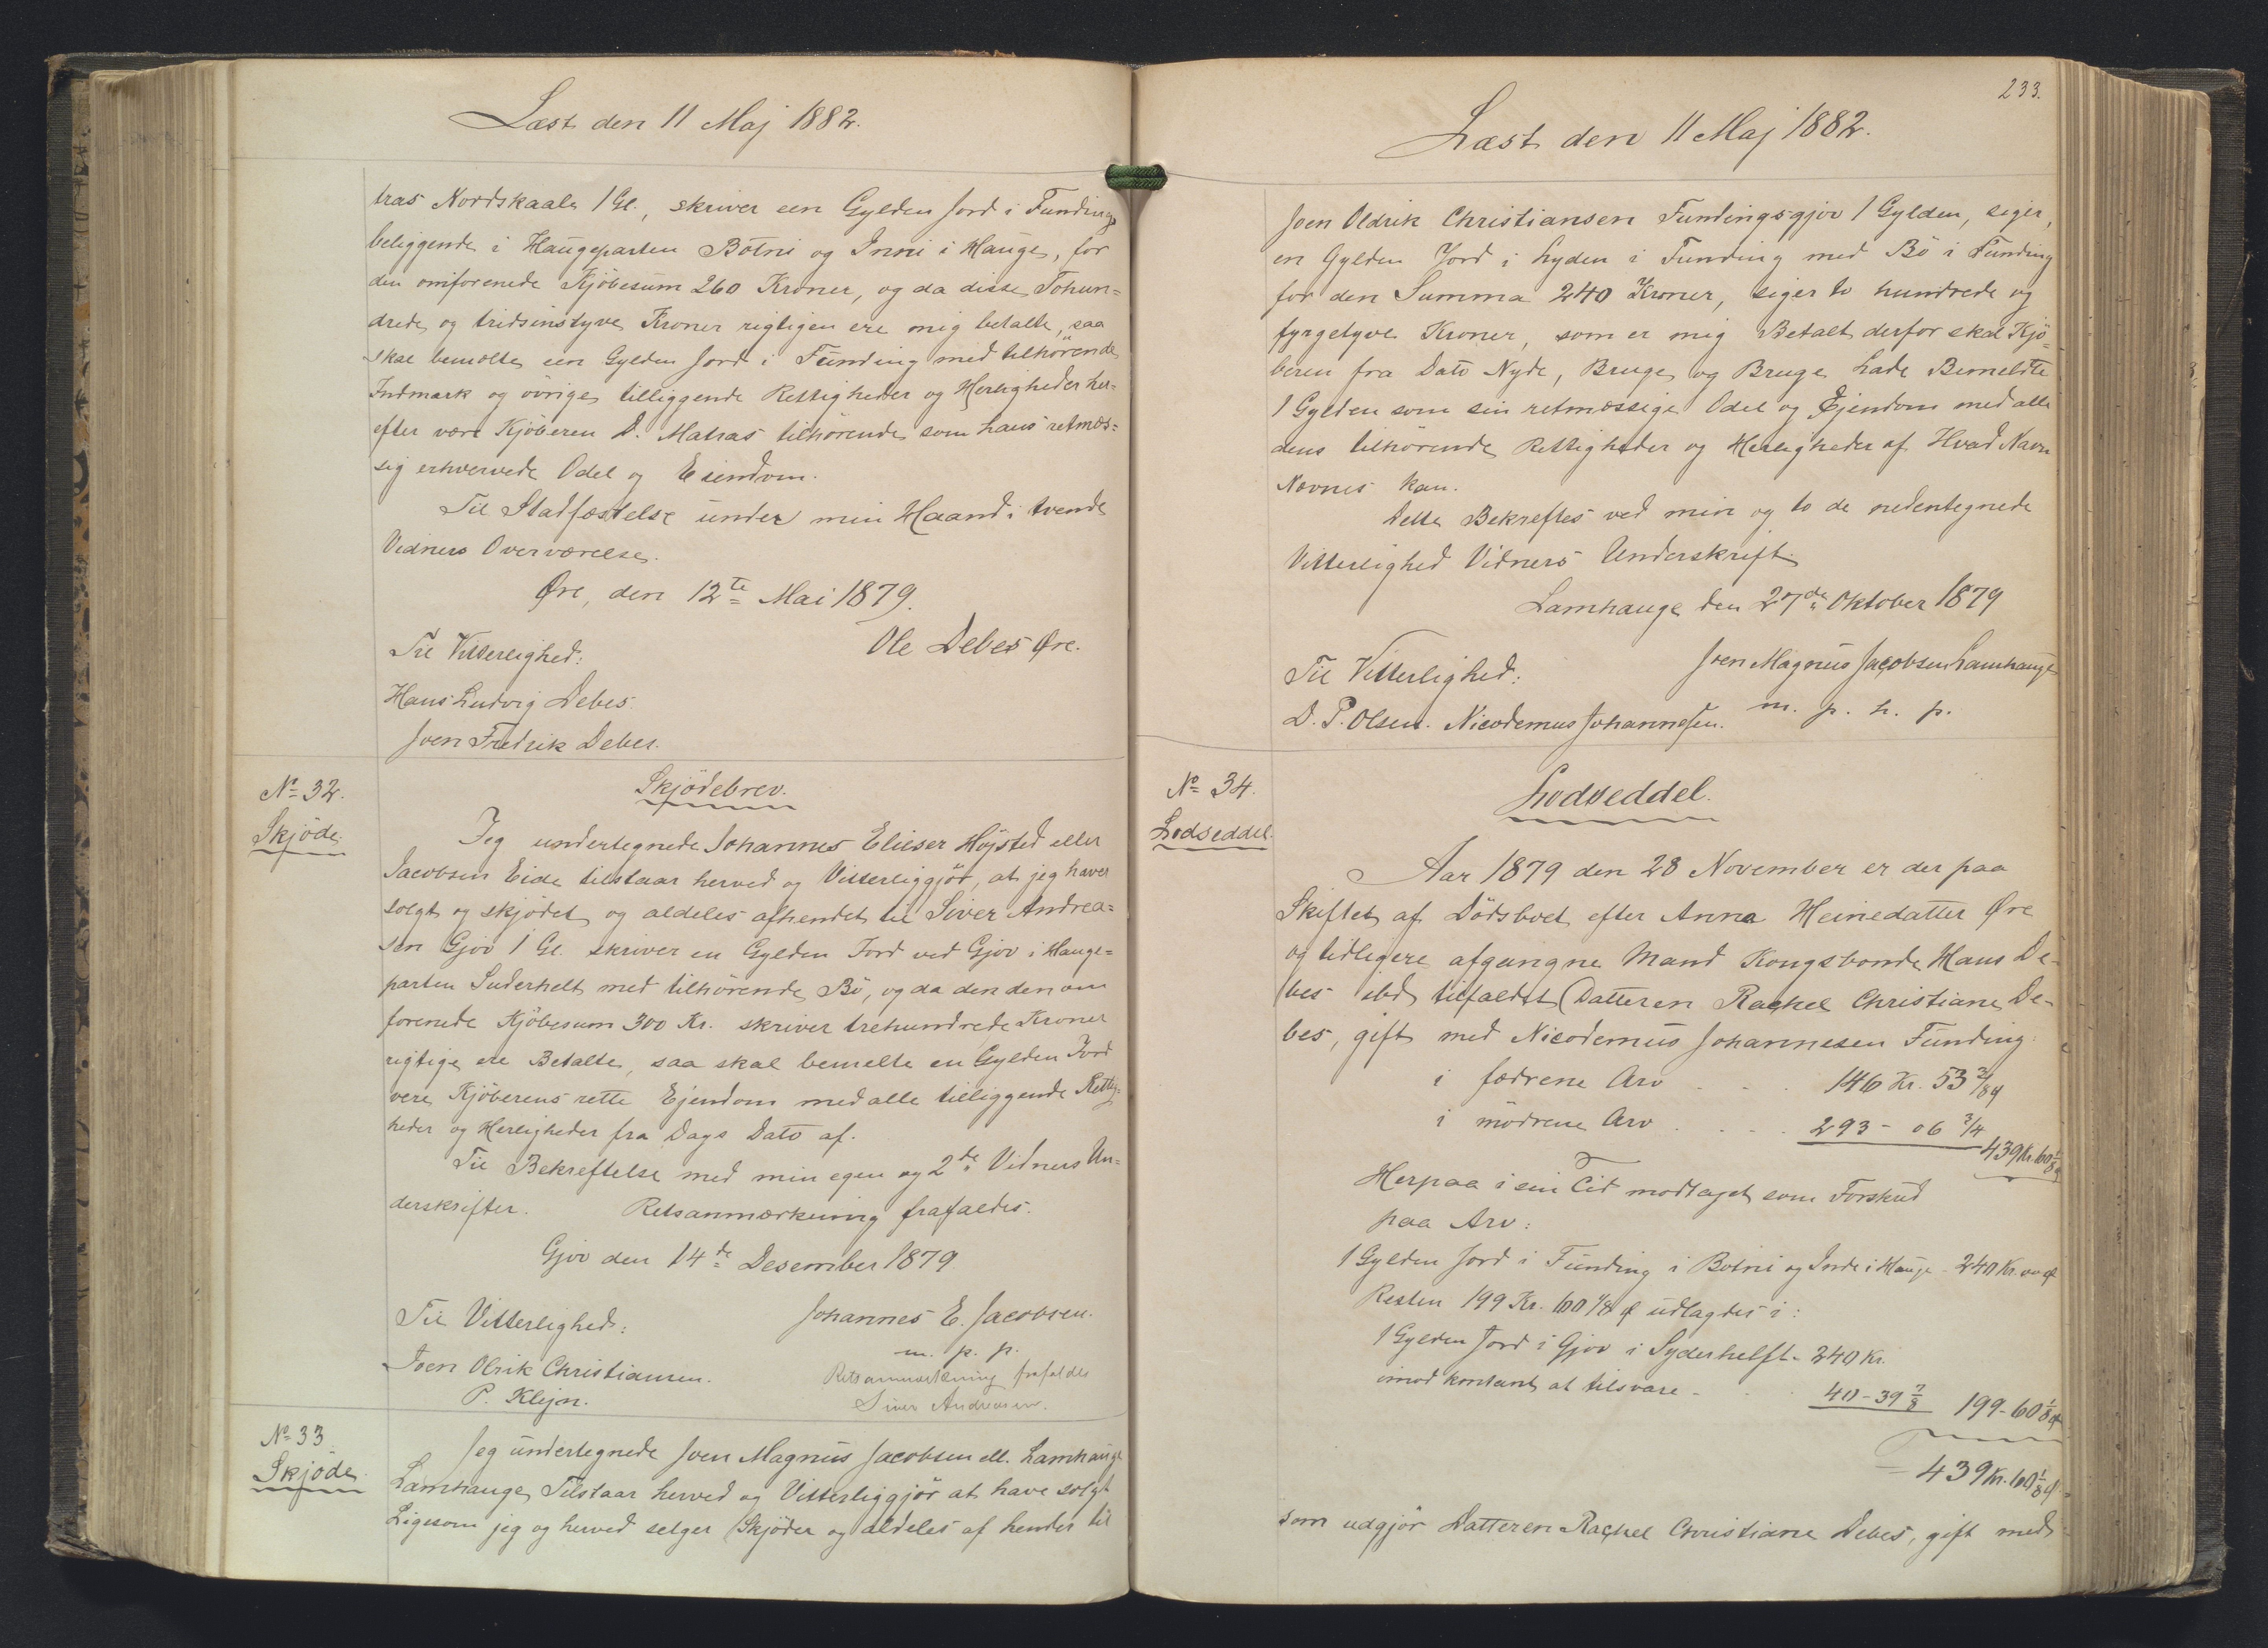 Læst den 11 Maj 1882.
tras Nordskaale 1 Gl., skriver een Gylden Jord i Funding
beliggende i Haugeparten Bötni og Inni i Hauge, for
den omforenede Kjöbesum 260 Kroner, og da disse Tohun=
drede og tridsinstyve Kroner rigtigen ere mig betalte, saa
skal bemelte een Gylden Jord i Funding med tilhörende
Indmark og övrige tilliggende Rettigheder og Herligheder her=
efter være Kjöberen D. Matras tilhörende som hans retmæs=
sig erhvervede Odel og Eiendom.
Til Stadfæstelse under min Haand i tvende
Vidners Overværelse.
Øre, den 12te Mai 1879.
Ole Debes Øre.
Til Vitterlighed:
Hans Ludvig Debes.
Joen Fredrik Debes.
No 32.
Skjöde
Skjödebrev.
Jeg undertegnede Johannes Elieser Höjsted eller
Jacobsen Eide tilstaar herved og Vitterliggjör, at jeg haver
solgt og skjödet og aldeles afhendet til Siver Andrea=
sen Gjov 1 Gl. skriver en Gylden Jord ved Gjov i Hauge=
parten Suderhelt med tilhörende Bö, og da den den om
forenede Kjöbesum 300 Kr. skriver trehundrede Kroner
rigtige ere Betalte, saa skal bemelte en Gylden Jord
vere Kjöberens rette Ejendom med alle tilliggende Rettig=
heder og Herligheder fra Dags Dato af.
Til Bekreftelse med min egen og 2de Vidners Un=
derskrifter. Retsanmærkning frafaldes.
Gjov den 14de Desember 1879.
Til Vitterlighed: Johannes E. Jacobsen.
m. p. p.
Joen Olrik Christiansen. Retsanmærkning frafaldes
P. Klejn. Siver Andreasen.
No 33
Skjöde.
Jeg undertegnede Joen Magnus Jacobsen ell. Lamhauge
Lamhauge Tilstaar herved og Vitterliggjör at have solgt
Ligesom jeg og herved selger Skjöder og aldeles af hender til
233.
Læst den 11 Maj 1882.
Joen Oldrik Christiansen Fundingsgjov 1 Gylden, siger,
en Gylden Jord i Lyden i Funding med Bö i Funding
for den Summa 240 Kroner, siger to hundrede og
fyrgetyve Kroner, som er mig Betalt derfor skal Kjö=
beren fra Dato Nyde, Bruge og Bruge Lade Bemeldte
1 Gylden som sin retmæssige Odel og Ejendom med alle
dens tilhörende Rettigheder og Herligheder af Hvad Navn
Nævnes kan.
Dette Bekreftes ved min og to de nedentegnede
Vitterlighed Vidners Underskrift.
Lamhauge den 27de Oktober 1879
Til Vitterlighed: Joen Magnus Jacobsen Lamhauge
D. P. Olsen. Nicodemus Johannesen. m. p. h. p.
No 34.
Lodseddel.
Lodseddel.
Aar 1879 den 28 November er der paa
Skiftet af Dödsboet efter Anna Heinedatter Øre
og tidligere afgangne Mand Kongsbonde Hans De-
bes ibd. tilfaldet Datteren Rackel Christiane De-
bes, gift med Nicodemus Johannesen Funding:
i fædrene Arv 146 Kr. 53 3/8 Ø
i mödrene Arv 293 - 06 3/4
439 Kr. 60 1/8 Ø
Herpaa i sin Tid modtaget som Forskud
paa Arv:
1 Gylden Jord i Funding i Botni og Inde i Hauge 240 Kr. 00 Ø
Resten 199 Kr. 60 1/8 Ø udlagdes i:
1 Gylden Jord i Gjov i Syderhelft. 240 Kr.
imod kontant at tilsvare - 40 - 39 7/8 199 - 60 1/8 Ø
439 Kr. 60 1/8 Ø
som udgjör Datteren Rachel Christiane Debes, gift med